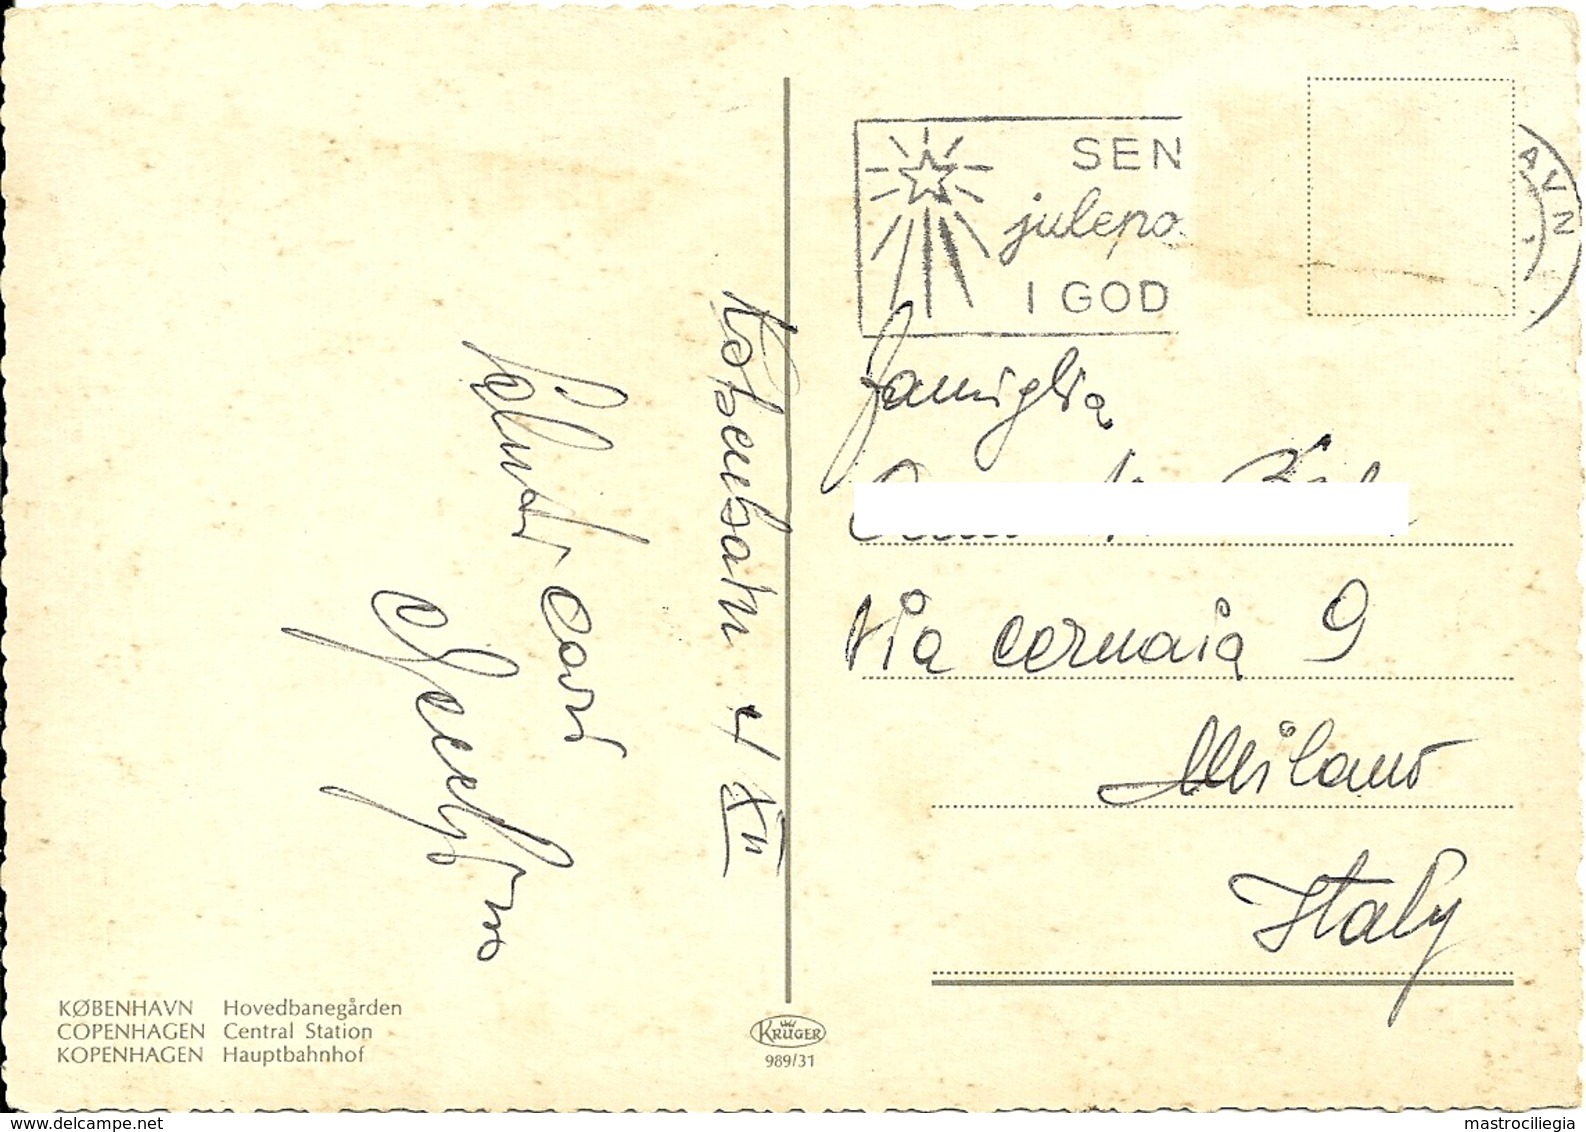 SEN
julepo
I GOD
AVN
famiglia
Via cernaia 9
Milano
Italy
Kobenhavn 4 XII
Saluti cari
KØBENHAVN Hovedbanegården
COPENHAGEN Central Station
KOPENHAGEN Hauptbahnhof
KRÜGER
989/31
www.delcampe.net
mastrociliegia